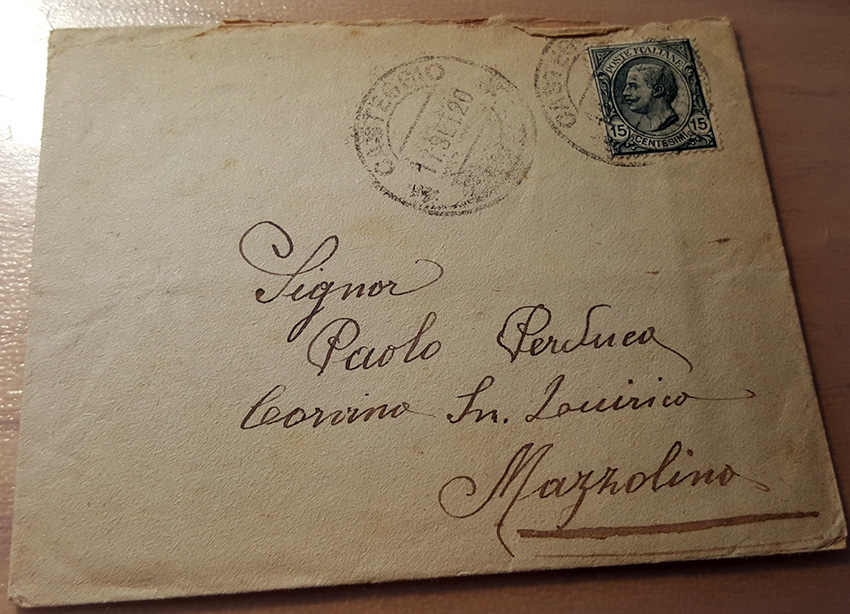 CASTEGGIO
17.SET.20
CASTEG
POSTE ITALIANE
15 CENTESIMI 15
Signor
Paolo Perduca
Corvino Sn. Quirico
Mazzolino